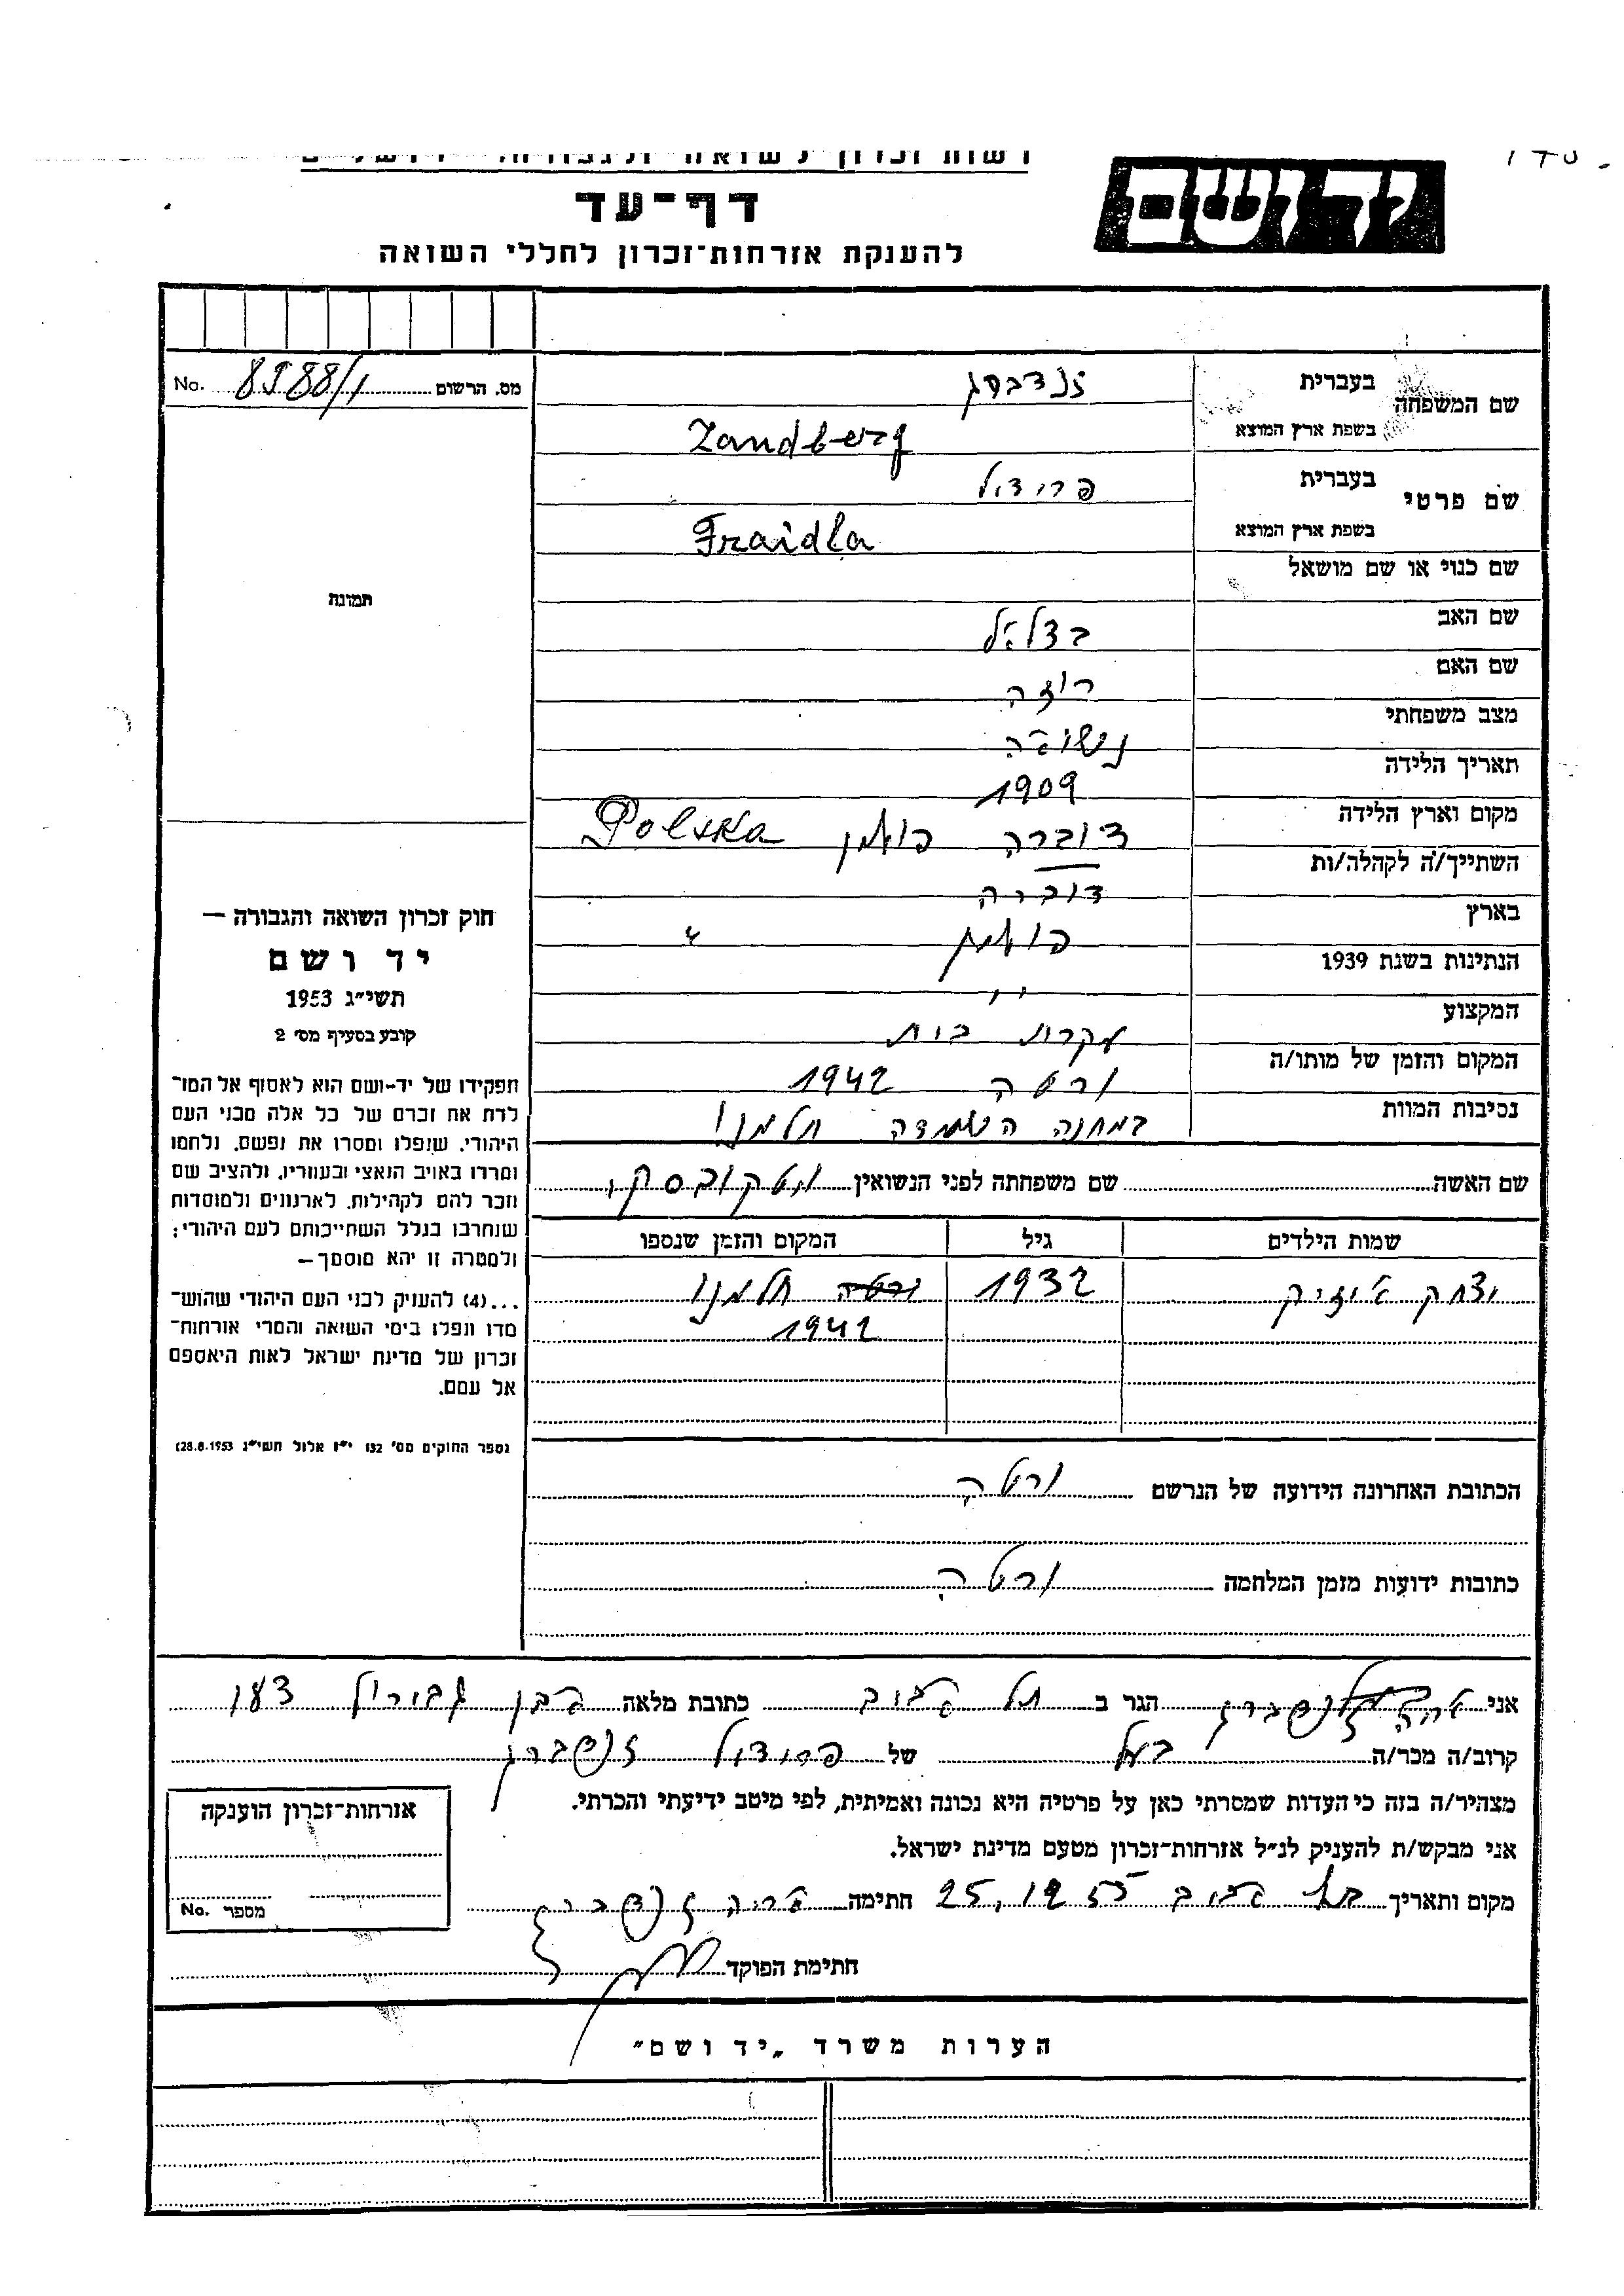 יד ושם
דף־עד
להענקת אזרחות־זכרון לחללי השואה
מס. הרשום 8988/1 No.
שם המשפחה
בעברית זנדברג
בשפת ארץ המוצא Zandberg
שם פרטי
בעברית פרידל
בשפת ארץ המוצא Fraidla
שם כנוי או שם מושאל
שם האב בצלאל
שם האם רוזה
מצב משפחתי נשואה
תאריך הלידה 1909
מקום וארץ הלידה דוברה פולין Polska
השתייך/ה לקהלה/ות דוברה
בארץ פולין "
הנתינות בשנת 1939 "
המקצוע עקרת בית
המקום והזמן של מותו/ה ורטה 1942
נסיבות המוות במחנה השמדה חלמנו
תמונה
חוק זכרון השואה והגבורה —
יד ושם
תשי״ג 1953
קובע בסעיף מס׳ 2
תפקידו של יד-ושם הוא לאסוף אל המו־
לדת את זכרם של כל אלה מבני העם
היהודי, שנפלו ומסרו את נפשם, נלחמו
ומרדו באויב הנאצי ובעוזריו, ולהציב שם
וזכר להם לקהילות, לארגונים ולמוסדות
שנחרבו בגלל השתייכותם לעם היהודי;
ולמטרה זו יהא מוסמך—
...(4) להעניק לבני העם היהודי שהוש־
מדו ונפלו בימי השואה והמרי אזרחות־
זכרון של מדינת ישראל לאות היאספם
אל עמם.
(ספר החוקים מס׳ 132 י״ז אלול תשי״ג 28.8.1953)
שם האשה שם משפחתה לפני הנשואין
שמות הילדים גיל המקום והזמן שנספו
יצחק אייזיק 1932 ורטה חלמנו
1942
הכתובת האחרונה הידועה של הנרשם ורטה
כתובות ידועות מזמן המלחמה ורטה
אני זנדברג הגר ב תל אביב כתובת מלאה אבן גבירול
קרוב/ה מכר/ה בעל של פרידל זנדברג
מצהיר/ה בזה כי העדות שמסרתי כאן על פרטיה היא נכונה ואמיתית, לפי מיטב ידיעתי והכרתי.
אני מבקש/ת להעניק לנ״ל אזרחות־זכרון מטעם מדינת ישראל.
מקום ותאריך תל אביב 25,12 55 חתימה אריה זנדברג
חתימת הפוקד
אזרחות־זכרון הוענקה
מספר No.
הערות משרד „יד ושם״